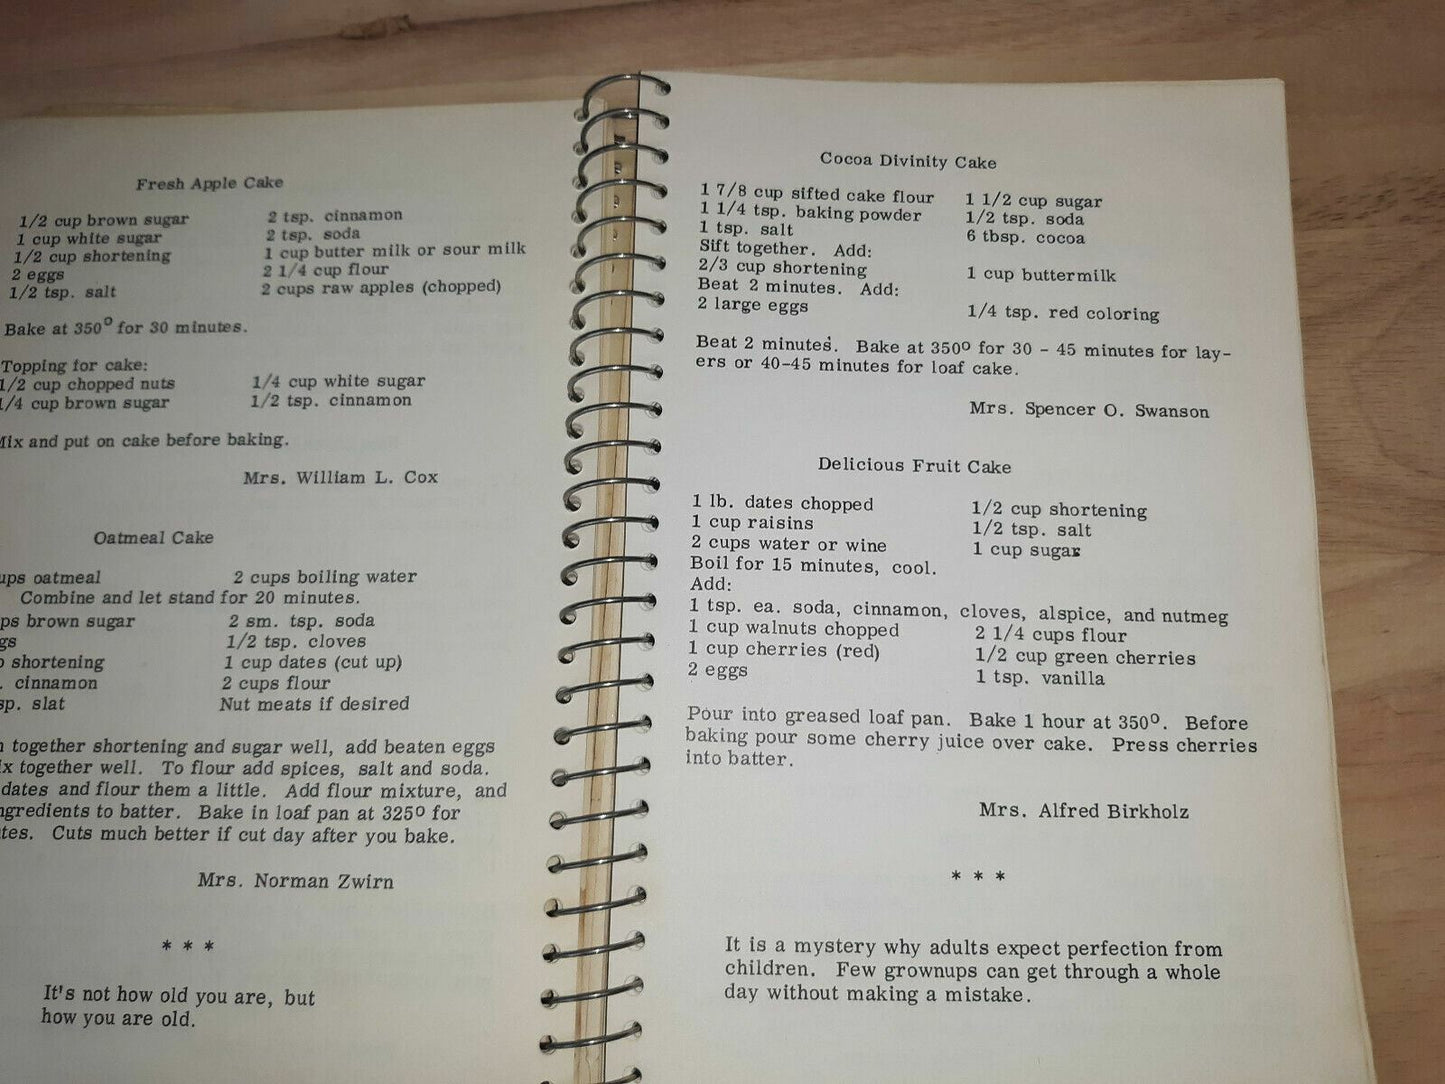 Fresh Apple Cake
1/2 cup brown sugar 2 tsp. cinnamon
1 cup white sugar 2 tsp. soda
1/2 cup shortening 1 cup butter milk or sour milk
2 eggs 2 1/4 cup flour
1/2 tsp. salt 2 cups raw apples (chopped)
Bake at 350° for 30 minutes.
Topping for cake:
1/2 cup chopped nuts 1/4 cup white sugar
1/4 cup brown sugar 1/2 tsp. cinnamon
Mix and put on cake before baking.
Mrs. William L. Cox
Oatmeal Cake
oatmeal 2 cups boiling water
Combine and let stand for 20 minutes.
brown sugar 2 sm. tsp. soda
1/2 tsp. cloves
shortening 1 cup dates (cut up)
cinnamon 2 cups flour
slat Nut meats if desired
together shortening and sugar well, add beaten eggs
together well. To flour add spices, salt and soda.
dates and flour them a little. Add flour mixture, and
to batter. Bake in loaf pan at 325° for
Cuts much better if cut day after you bake.
Mrs. Norman Zwirn
* * *
It's not how old you are, but
how you are old.
Cocoa Divinity Cake
1 7/8 cup sifted cake flour 1 1/2 cup sugar
1 1/4 tsp. baking powder 1/2 tsp. soda
1 tsp. salt 6 tbsp. cocoa
Sift together. Add:
2/3 cup shortening 1 cup buttermilk
Beat 2 minutes. Add:
2 large eggs 1/4 tsp. red coloring
Beat 2 minutes. Bake at 350° for 30 - 45 minutes for lay-
ers or 40-45 minutes for loaf cake.
Mrs. Spencer O. Swanson
Delicious Fruit Cake
1 lb. dates chopped 1/2 cup shortening
1 cup raisins 1/2 tsp. salt
2 cups water or wine 1 cup sugar
Boil for 15 minutes, cool.
Add:
1 tsp. ea. soda, cinnamon, cloves, alspice, and nutmeg
1 cup walnuts chopped 2 1/4 cups flour
1 cup cherries (red) 1/2 cup green cherries
2 eggs 1 tsp. vanilla
Pour into greased loaf pan. Bake 1 hour at 350°. Before
baking pour some cherry juice over cake. Press cherries
into batter.
Mrs. Alfred Birkholz
* * *
It is a mystery why adults expect perfection from
children. Few grownups can get through a whole
day without making a mistake.